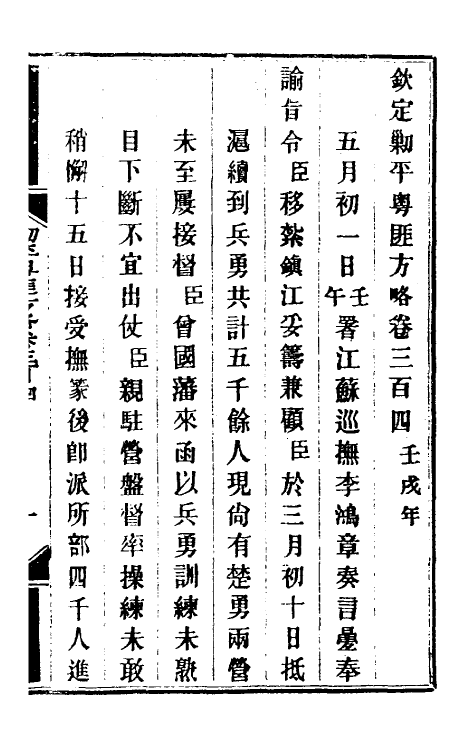 欽定勦平粵匪方略卷三百四 壬戌年
五月初一日壬午署江蘇巡撫李鴻章奏言疊奉
諭旨令臣移紮鎮江妥籌兼顧臣於三月初十日抵
滬續到兵勇共計五千餘人現尙有楚勇兩營
未至屢接督臣曾國藩來函以兵勇訓練未熟
目下斷不宜出仗臣親駐營盤督率操練未敢
稍懈十五日接受撫篆後卽派所部四千人進